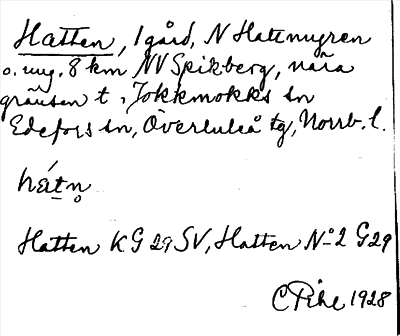 Hatten, 1 gård, N Hatmyren
o. ung. 8 km NV Spikberg, nära
gränsen t. Jokkmokks sn
Edefors sn, Överluleå tg, Norrb. l.
hátn̥
Hatten KG 29 SV, Hatten No 2 G29
C Pihl 1928